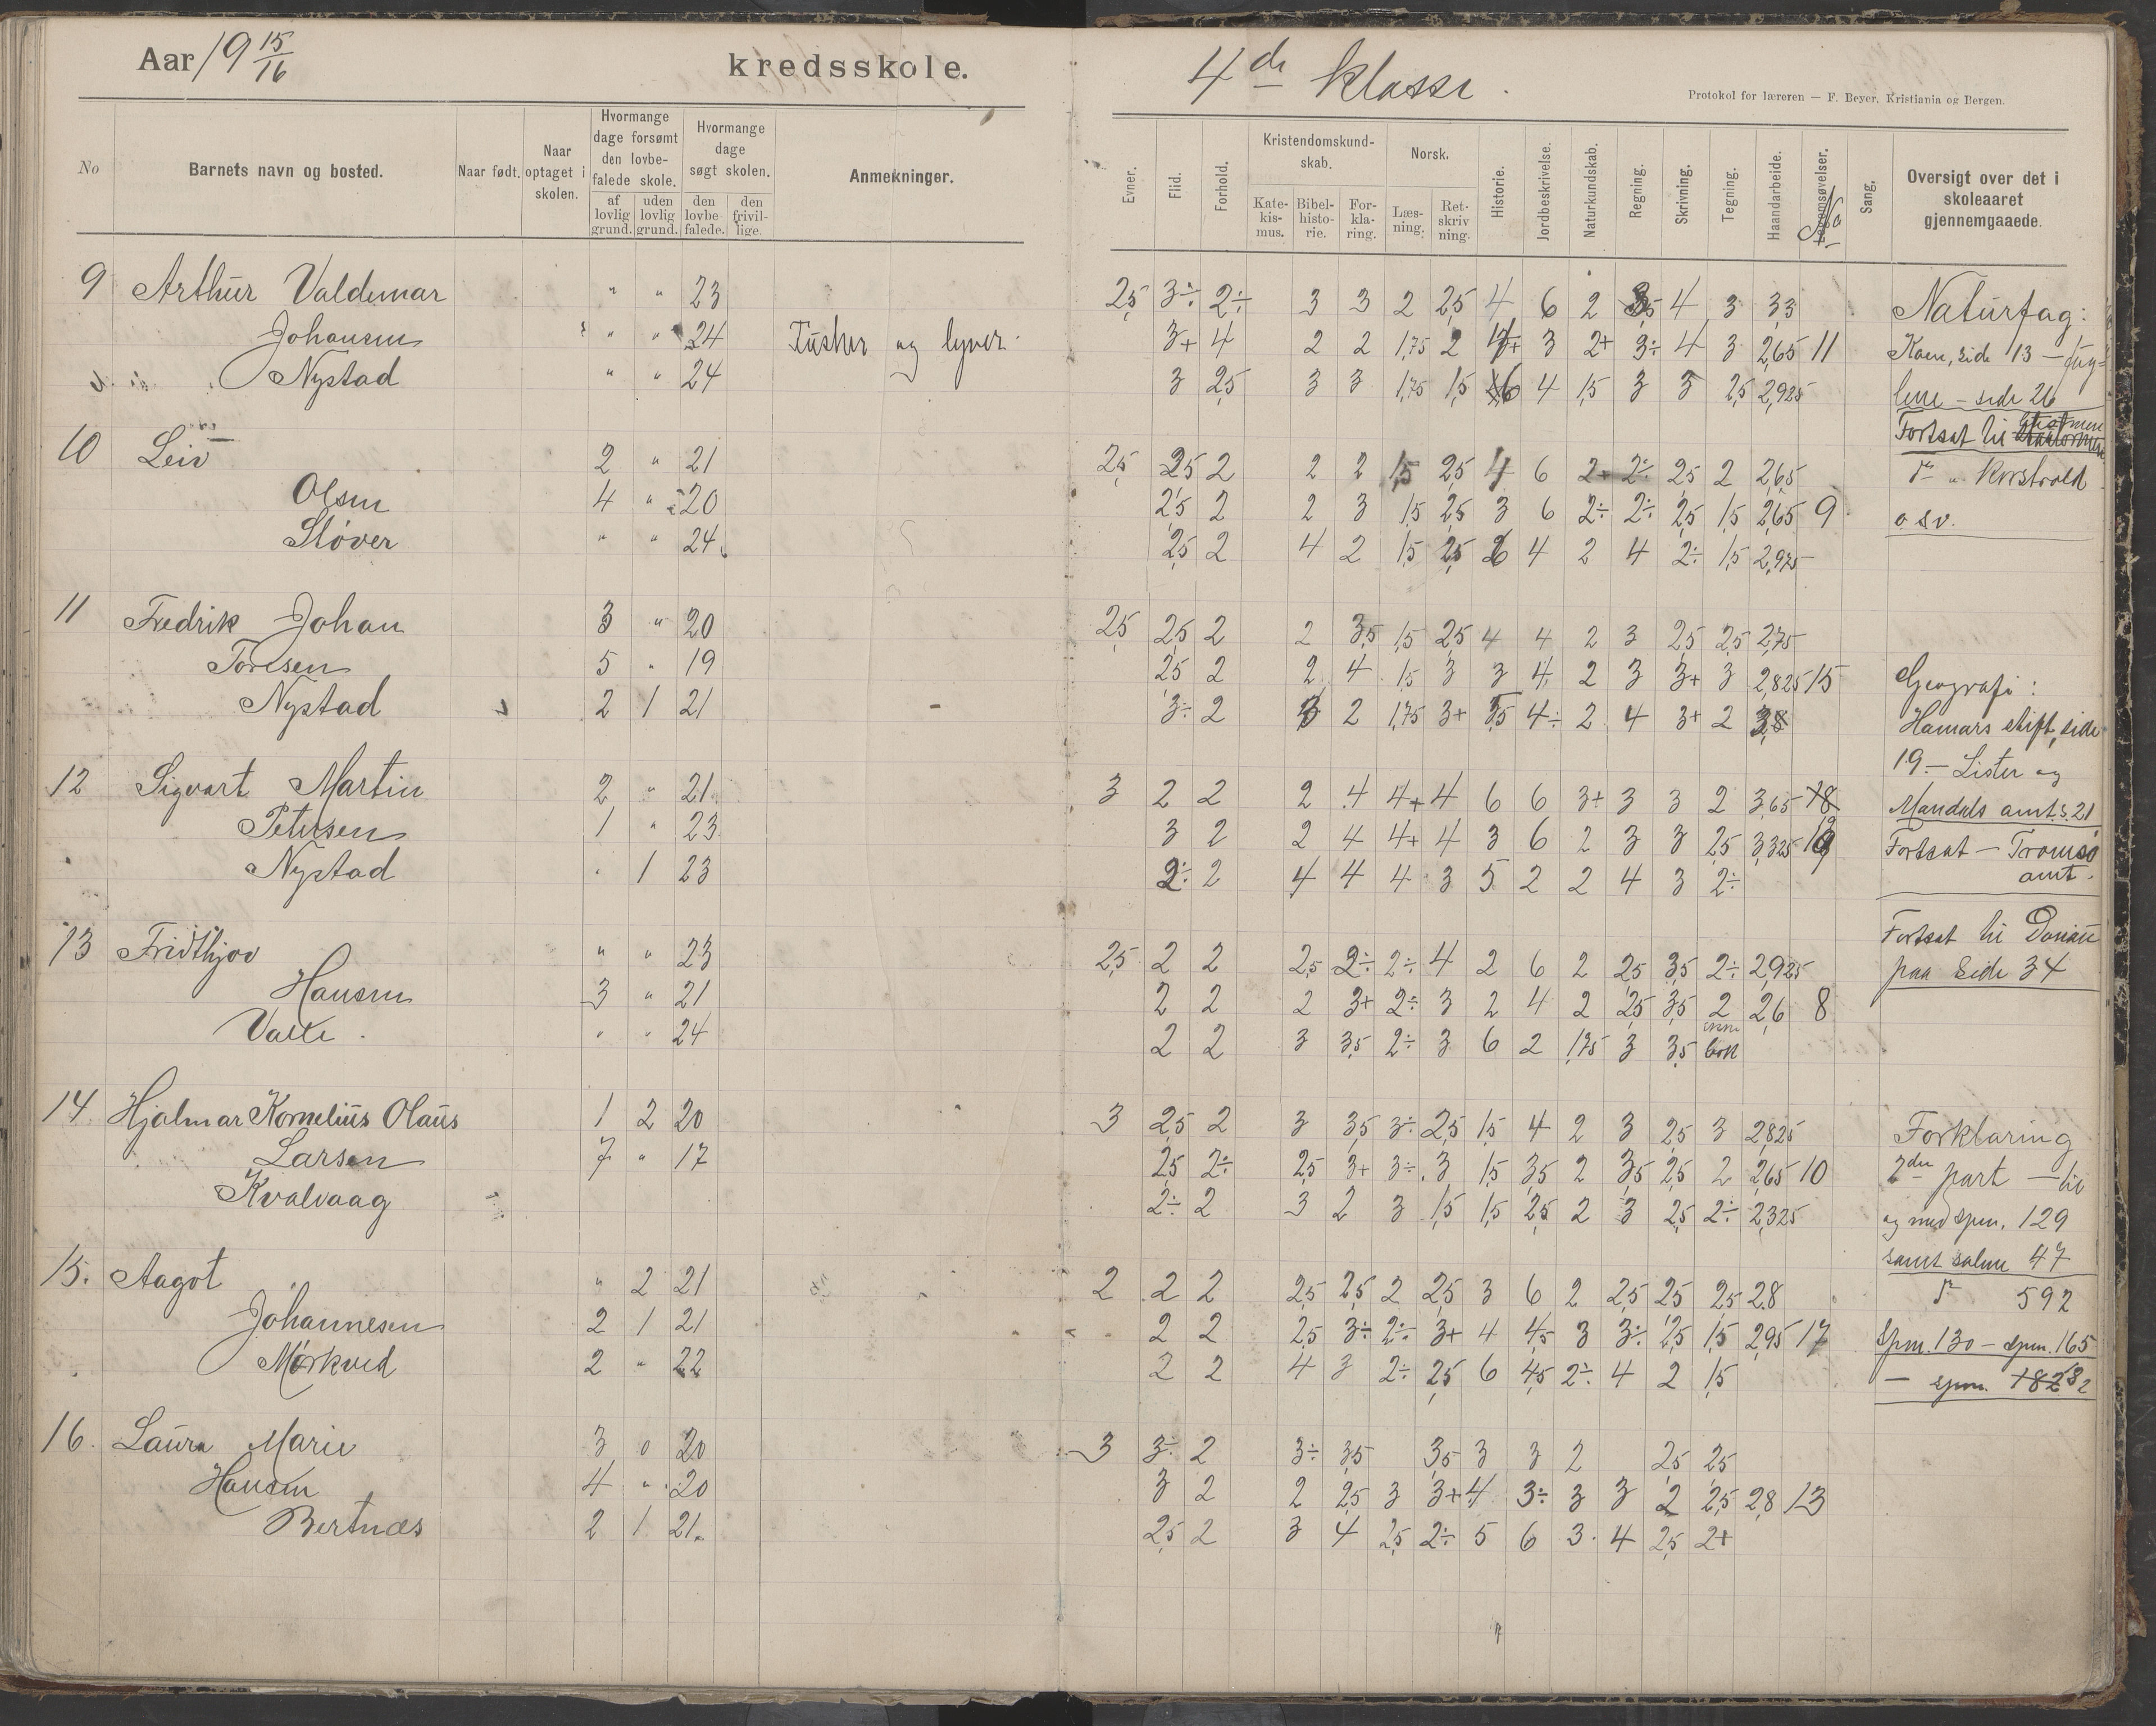 Aar 19 15/16 kredsskole.
4de klasse.
Protokol for læreren — F. Beyer, Kristiania og Bergen.
No
Barnets navn og bosted.
Naar født.
Naar optaget i skolen.
Hvormange dage forsømt den lovbefalede skole.
af lovlig grund.
uden lovlig grund.
Hvormange dage søgt skolen.
den lovbefalede.
den frivillige.
Anmekninger.
Evner.
Flid.
Forhold.
Kristendomskundskab.
Katekismus.
Bibelhistorie.
Forklaring.
Norsk.
Læsning.
Retskrivning.
Historie.
Jordbeskrivelse.
Naturkundskab.
Regning.
Skrivning.
Tegning.
Haandarbeide.
Legemsøvelser. No
Sang.
Oversigt over det i skoleaaret gjennemgaaede.
9 Arthur Valdemar " " 23 2,5 3÷ 2÷ 3 3 2 2,5 4 6 2 3,5 4 3 3,3
Johansen " " 24 Fusker og lyver. 3+ 4 2 2 1,75 2 4+ 3 2+ 3÷ 4 3 2,65 11
Nystad " " 24 3 2,5 3 3 1,75 1,5 6 4 1,5 3 3 2,5 2,925
10 Leiv 2 " 21 2,5 2,5 2 2 2 1,5 2,5 4 6 2+ 2÷ 2,5 2 2,65
Olsen 4 " 20 2,5 2 2 3 1,5 2,5 3 6 2÷ 2÷ 2,5 1,5 2,65 9
Støver " " 24 2,5 2 4 2 1,5 2,5 6 4 2 4 2÷ 1,5 2,975
11 Fredrik Johan 3 " 20 2,5 2,5 2 2 3,5 1,5 2,5 4 4 2 3 2,5 2,5 2,75
Toresen 5 " 19 2,5 2 2 4 1,5 3 3 4 2 3 3+ 3 2,825 15
Nystad 2 1 21 3÷ 2 3 2 1,75 3+ 5,5 4÷ 2 4 3+ 2 3,8
12 Sigvart Martin 2 " 21 3 2 2 2 4 4+ 4 6 6 3+ 3 3 2 3,65 18
Petersen 1 " 23 3 2 2 4 4+ 4 3 6 2 3 3 2,5 3,325 19
Nystad " 1 23 2÷ 2 4 4 4 3 5 2 2 4 3 2÷
13 Fridthjov " " 23 2,5 2 2 2,5 2÷ 2÷ 4 2 6 2 2,5 3,5 2÷ 2,925
Hansen 3 " 21 2 2 2 3+ 2÷ 3 2 4 2 2,5 3,5 2 2,6 8
Valle. " " 24 2 2 3 3,5 2÷ 3 6 2 1,75 3 3,5
14 Hjalmar Kornelius Olaus 1 2 20 3 2,5 2 3 3,5 3÷ 2,5 1,5 4 2 3 2,5 3 2,825
Larsen 7 " 17 2,5 2÷ 2,5 3+ 3÷ 3 1,5 3,5 2 3,5 2,5 2 2,65 10
Kvalvaag 2÷ 2 3 2 3 1,5 1,5 2,5 2 3 2,5 2÷ 2,325
15. Aagot " 2 21 2 2 2 2,5 2,5 2 2,5 3 6 2 2,5 2,5 2,5 2,8
Johannesen 2 1 21 2 2 2,5 3÷ 2÷ 3+ 4 4,5 3 3÷ 2,5 1,5 2,95 17
Mørkved 2 " 22 2 2 4 3 2÷ 2,5 6 4,5 2÷ 4 2 1,5
16. Laura Marie 3 0 20 3 3÷ 2 3÷ 3,5 3,5 3 3 2 2,5 2,5
Hansen 4 " 20 3 2 2 2,5 3 3+ 4 3÷ 3 3 2 2,5 2,8 13
Bertnæs 2 1 21. 2,5 2 3 4 2,5 2÷ 5 6 3 4 2,5 2+
Naturfag:
Koen, side 13 — fug-
lene — side 26
Fortsat til
d° " Korstrold
o.s.v.
Geografi:
Hamars stift, side
19. — Lister og
Mandals amt. s. 21
Fortsat — Tromsø
amt.
Fortsat til Donau
paa Side 34
Forklaring
2den part — til
og med spm. 129
samt salme 47
d° 592
Spm. 130 — spm. 165
— spm. 182